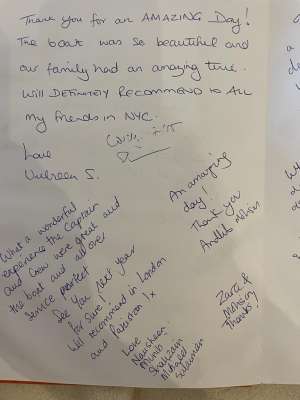 Thank you for an AMAZING Day!
The boat was so beautiful and
our family had an amazing time.
Will DEFINITELY RECOMMEND to ALL
my friends in NYC.
Love
S.
An amazing
day!
Thank you
What a wonderful
experience the Captain
and Crew were great and
the boat and all over
service perfect
See you next year
for sure!
Will recommend in London
and Pakistan 1x
Love
Nausheen
Munib
Shahzain
Sulaiman
Zara &
Mohsin
Thanks!